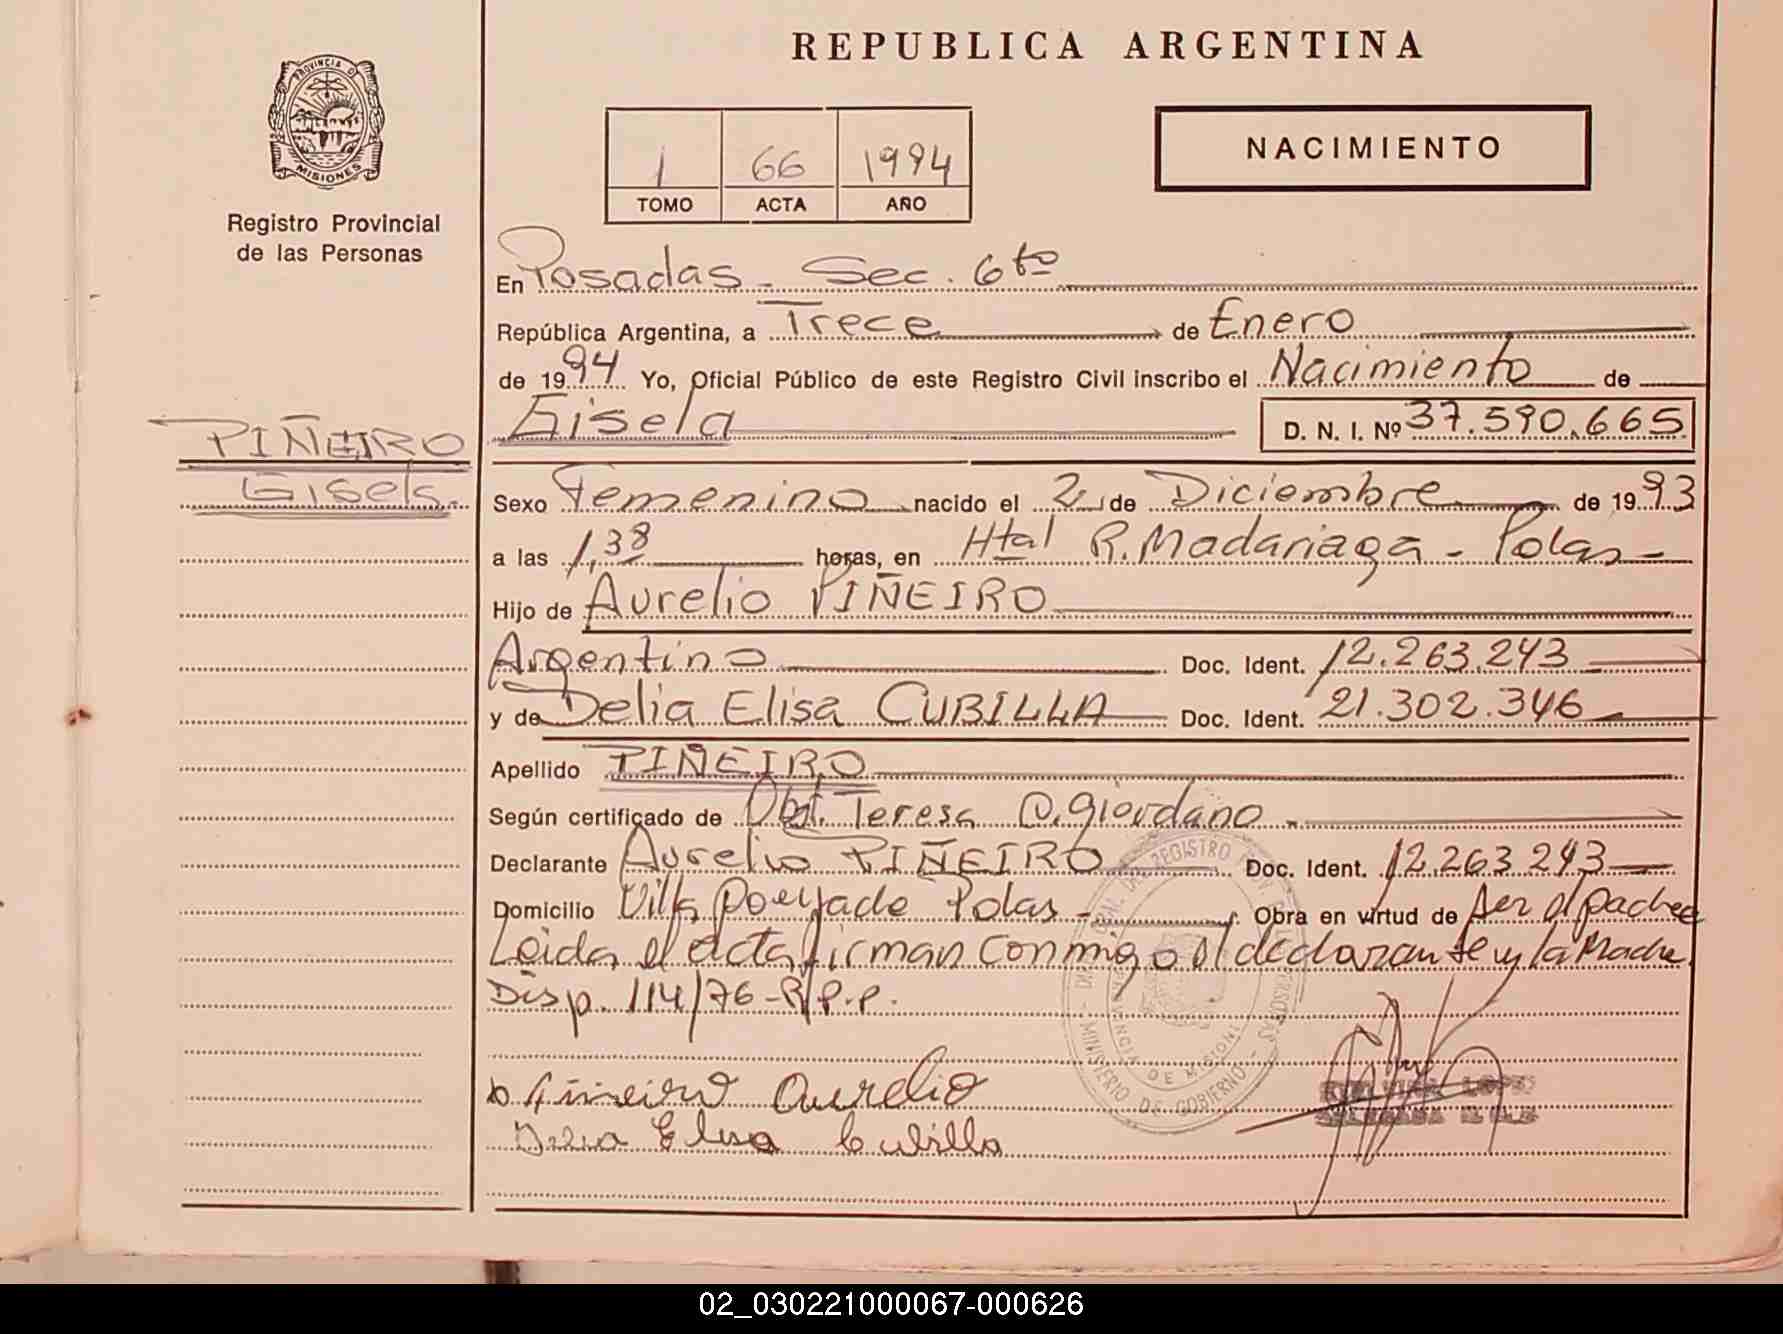 REPUBLICA ARGENTINA
PROVINCIA D
MISIONES
Registro Provincial
de las Personas
1 66 1994
TOMO ACTA AÑO
NACIMIENTO
En Posadas - Sec. 6to
República Argentina, a Trece de Enero
de 1994 Yo, Oficial Público de este Registro Civil inscribo el Nacimiento de
Gisela D. N. I. Nº 37.590.665
PIÑEIRO
Gisela.
Sexo Femenino nacido el 2 de Diciembre de 1993
a las 1,38 horas, en Htal R. Madariaga - Pdas -
Hijo de Aurelio PIÑEIRO
Argentino Doc. Ident. 12.263.243
y de Delia Elisa CUBILLA Doc. Ident. 21.302.346
Apellido PIÑEIRO
Según certificado de Obst. Teresa O. Giordano -
Declarante Aurelio PIÑEIRO Doc. Ident. 12.263.243
Domicilio Villa Poujade Pdas - Obra en virtud de ser el padre
Leida el acta firman conmigo el declarante y la Madre.
Disp. 114/76-R.P.P.
Piñeiro Aurelio
Delia Elisa Cubilla
MINISTERIO DE GOBIERNO - PROVINCIA DE MISIONES
LOPEZ
02_030221000067-000626